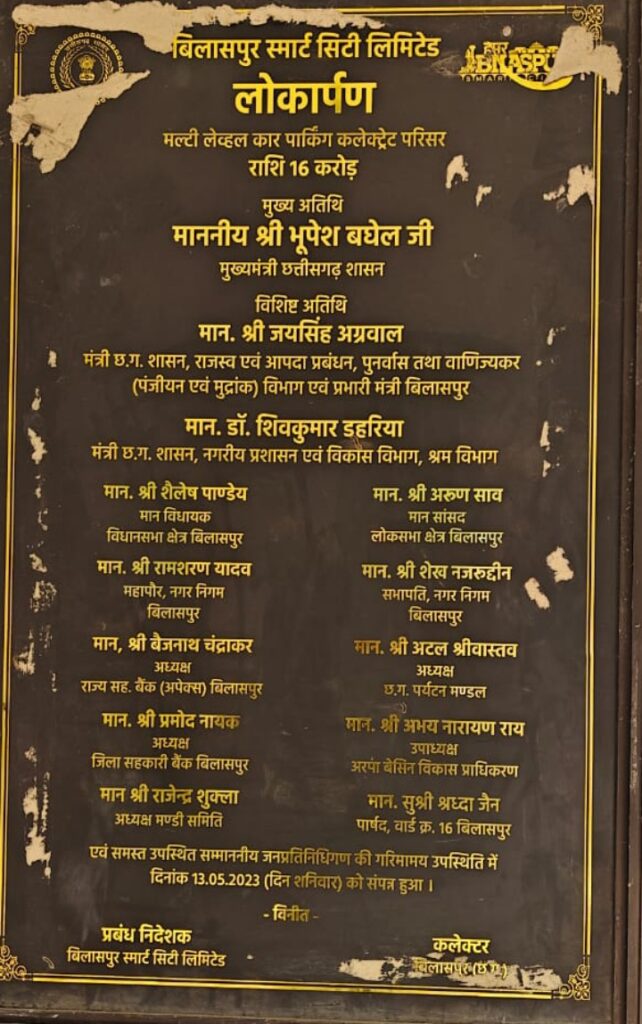 बिलासपुर स्मार्ट सिटी लिमिटेड
लोकार्पण
मल्टी लेव्हल कार पार्किंग कलेक्ट्रेट परिसर
राशि 16 करोड़
मुख्य अतिथि
माननीय श्री भूपेश बघेल जी
मुख्यमंत्री छत्तीसगढ़ शासन
विशिष्ट अतिथि
मान. श्री जयसिंह अग्रवाल
मंत्री छ.ग. शासन, राजस्व एवं आपदा प्रबंधन, पुनर्वास तथा वाणिज्यकर
(पंजीयन एवं मुद्रांक) विभाग एवं प्रभारी मंत्री बिलासपुर
मान. डॉ. शिवकुमार डहरिया
मंत्री छ.ग. शासन, नगरीय प्रशासन एवं विकास विभाग, श्रम विभाग
मान. श्री शैलेष पाण्डेय
मान विधायक
विधानसभा क्षेत्र बिलासपुर
मान. श्री अरूण साव
मान सांसद
लोकसभा क्षेत्र बिलासपुर
मान. श्री रामशरण यादव
महापौर, नगर निगम
बिलासपुर
मान. श्री शेख नजरूद्दीन
सभापति, नगर निगम
बिलासपुर
मान, श्री बैजनाथ चंद्राकर
अध्यक्ष
राज्य सह. बैंक (अपेक्स) बिलासपुर
मान. श्री अटल श्रीवास्तव
अध्यक्ष
छ.ग. पर्यटन मण्डल
मान. श्री प्रमोद नायक
अध्यक्ष
जिला सहकारी बैंक बिलासपुर
मान. श्री अभय नारायण राय
उपाध्यक्ष
अरपा बेसिन विकास प्राधिकरण
मान श्री राजेन्द्र शुक्ला
अध्यक्ष मण्डी समिति
मान. सुश्री श्रध्दा जैन
पार्षद, वार्ड क्र. 16 बिलासपुर
एवं समस्त उपस्थित सम्माननीय जनप्रतिनिधिगण की गरिमामय उपस्थिति में
दिनांक 13.05.2023 (दिन शनिवार) को संपन्न हुआ ।
- विनीत -
प्रबंध निदेशक
बिलासपुर स्मार्ट सिटी लिमिटेड
कलेक्टर
बिलासपुर (छ.ग.)